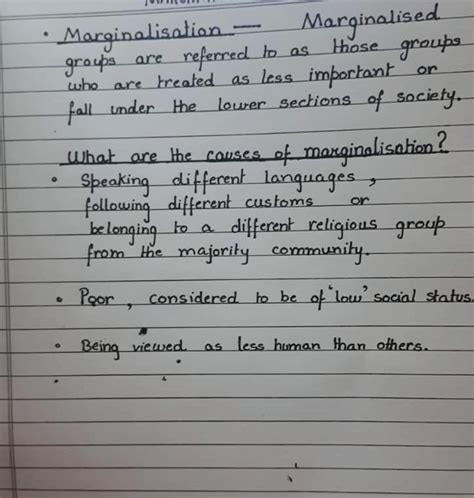 • Marginalisation — Marginalised
groups are referred to as those groups
who are treated as less important or
fall under the lower sections of society.
What are the causes of marginalisation?
• Speaking different languages,
following different customs or
belonging to a different religious group
from the majority community.
• Poor, considered to be of 'low' social status.
• Being viewed as less human than others.
•